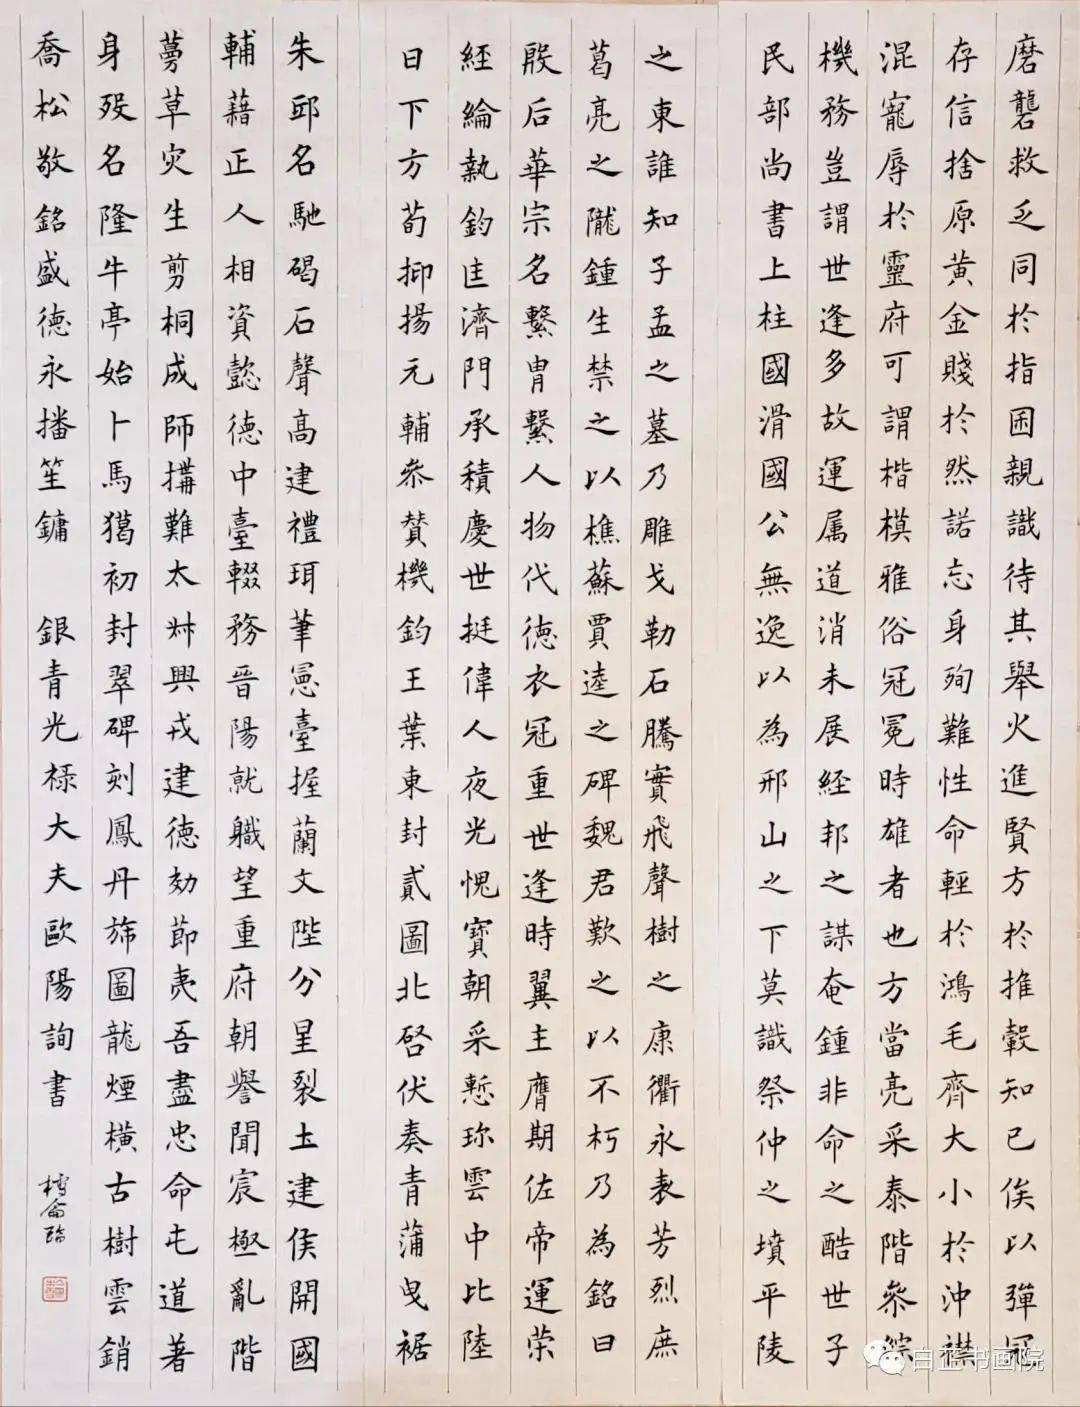 磨礱救乏同於指囷親識待其舉火進賢方於推轂知己俟以彈冠
存信捨原黃金賤於然諾忘身殉難性命輕於鴻毛齊大小於沖襟
混寵辱於靈府可謂楷模雅俗冠冕時雄者也方當亮采泰階參綜
機務豈謂世逢多故運属道消未展經邦之謀奄鍾非命之酷世子
民部尚書上柱國滑國公無逸以為邢山之下莫識祭仲之墳平陵
之東誰知子孟之墓乃雕戈勒石騰實飛聲樹之康衢永表芳烈庶
葛亮之隴鍾生禁之以樵蘇賈逵之碑魏君歎之以不朽乃為銘曰
殷后華宗名繫冑繫人物代德衣冠重世逢時翼主膺期佐帝運荣
經綸執鈞匡濟門承積慶世挺偉人夜光愧寶朝采慙珎雲中比陸
日下方荀抑揚元輔叅賛機鈞王葉東封貳圖北啓伏奏青蒲曳裾
朱邸名馳碣石聲高建禮珥筆憲臺握蘭文陛分星裂土建侯開國
輔藉正人相資懿德中臺輟務晋陽就軄望重府朝譽聞宸極亂階
蔓草灾生剪桐成師搆難太叔興戎建德効節夷吾盡忠命屯道著
身殁名隆牛亭始卜馬獦初封翠碑刻鳳丹旆圖龍煙橫古樹雲銷
喬松敬銘盛德永播笙鏞 銀青光禄大夫歐陽詢書
白正书画院